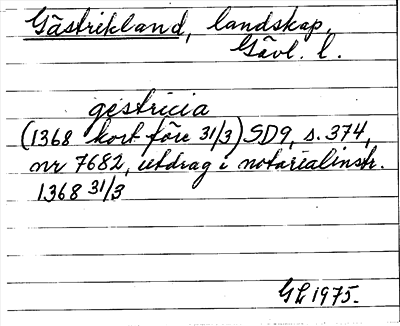 Gästrikland, landskap,
Gävl. l.
gestricia
(1368 kort före 31/3) SD9, s. 374,
nr 7682, utdrag i notarialinstr.
1368 31/3
GL 1975.